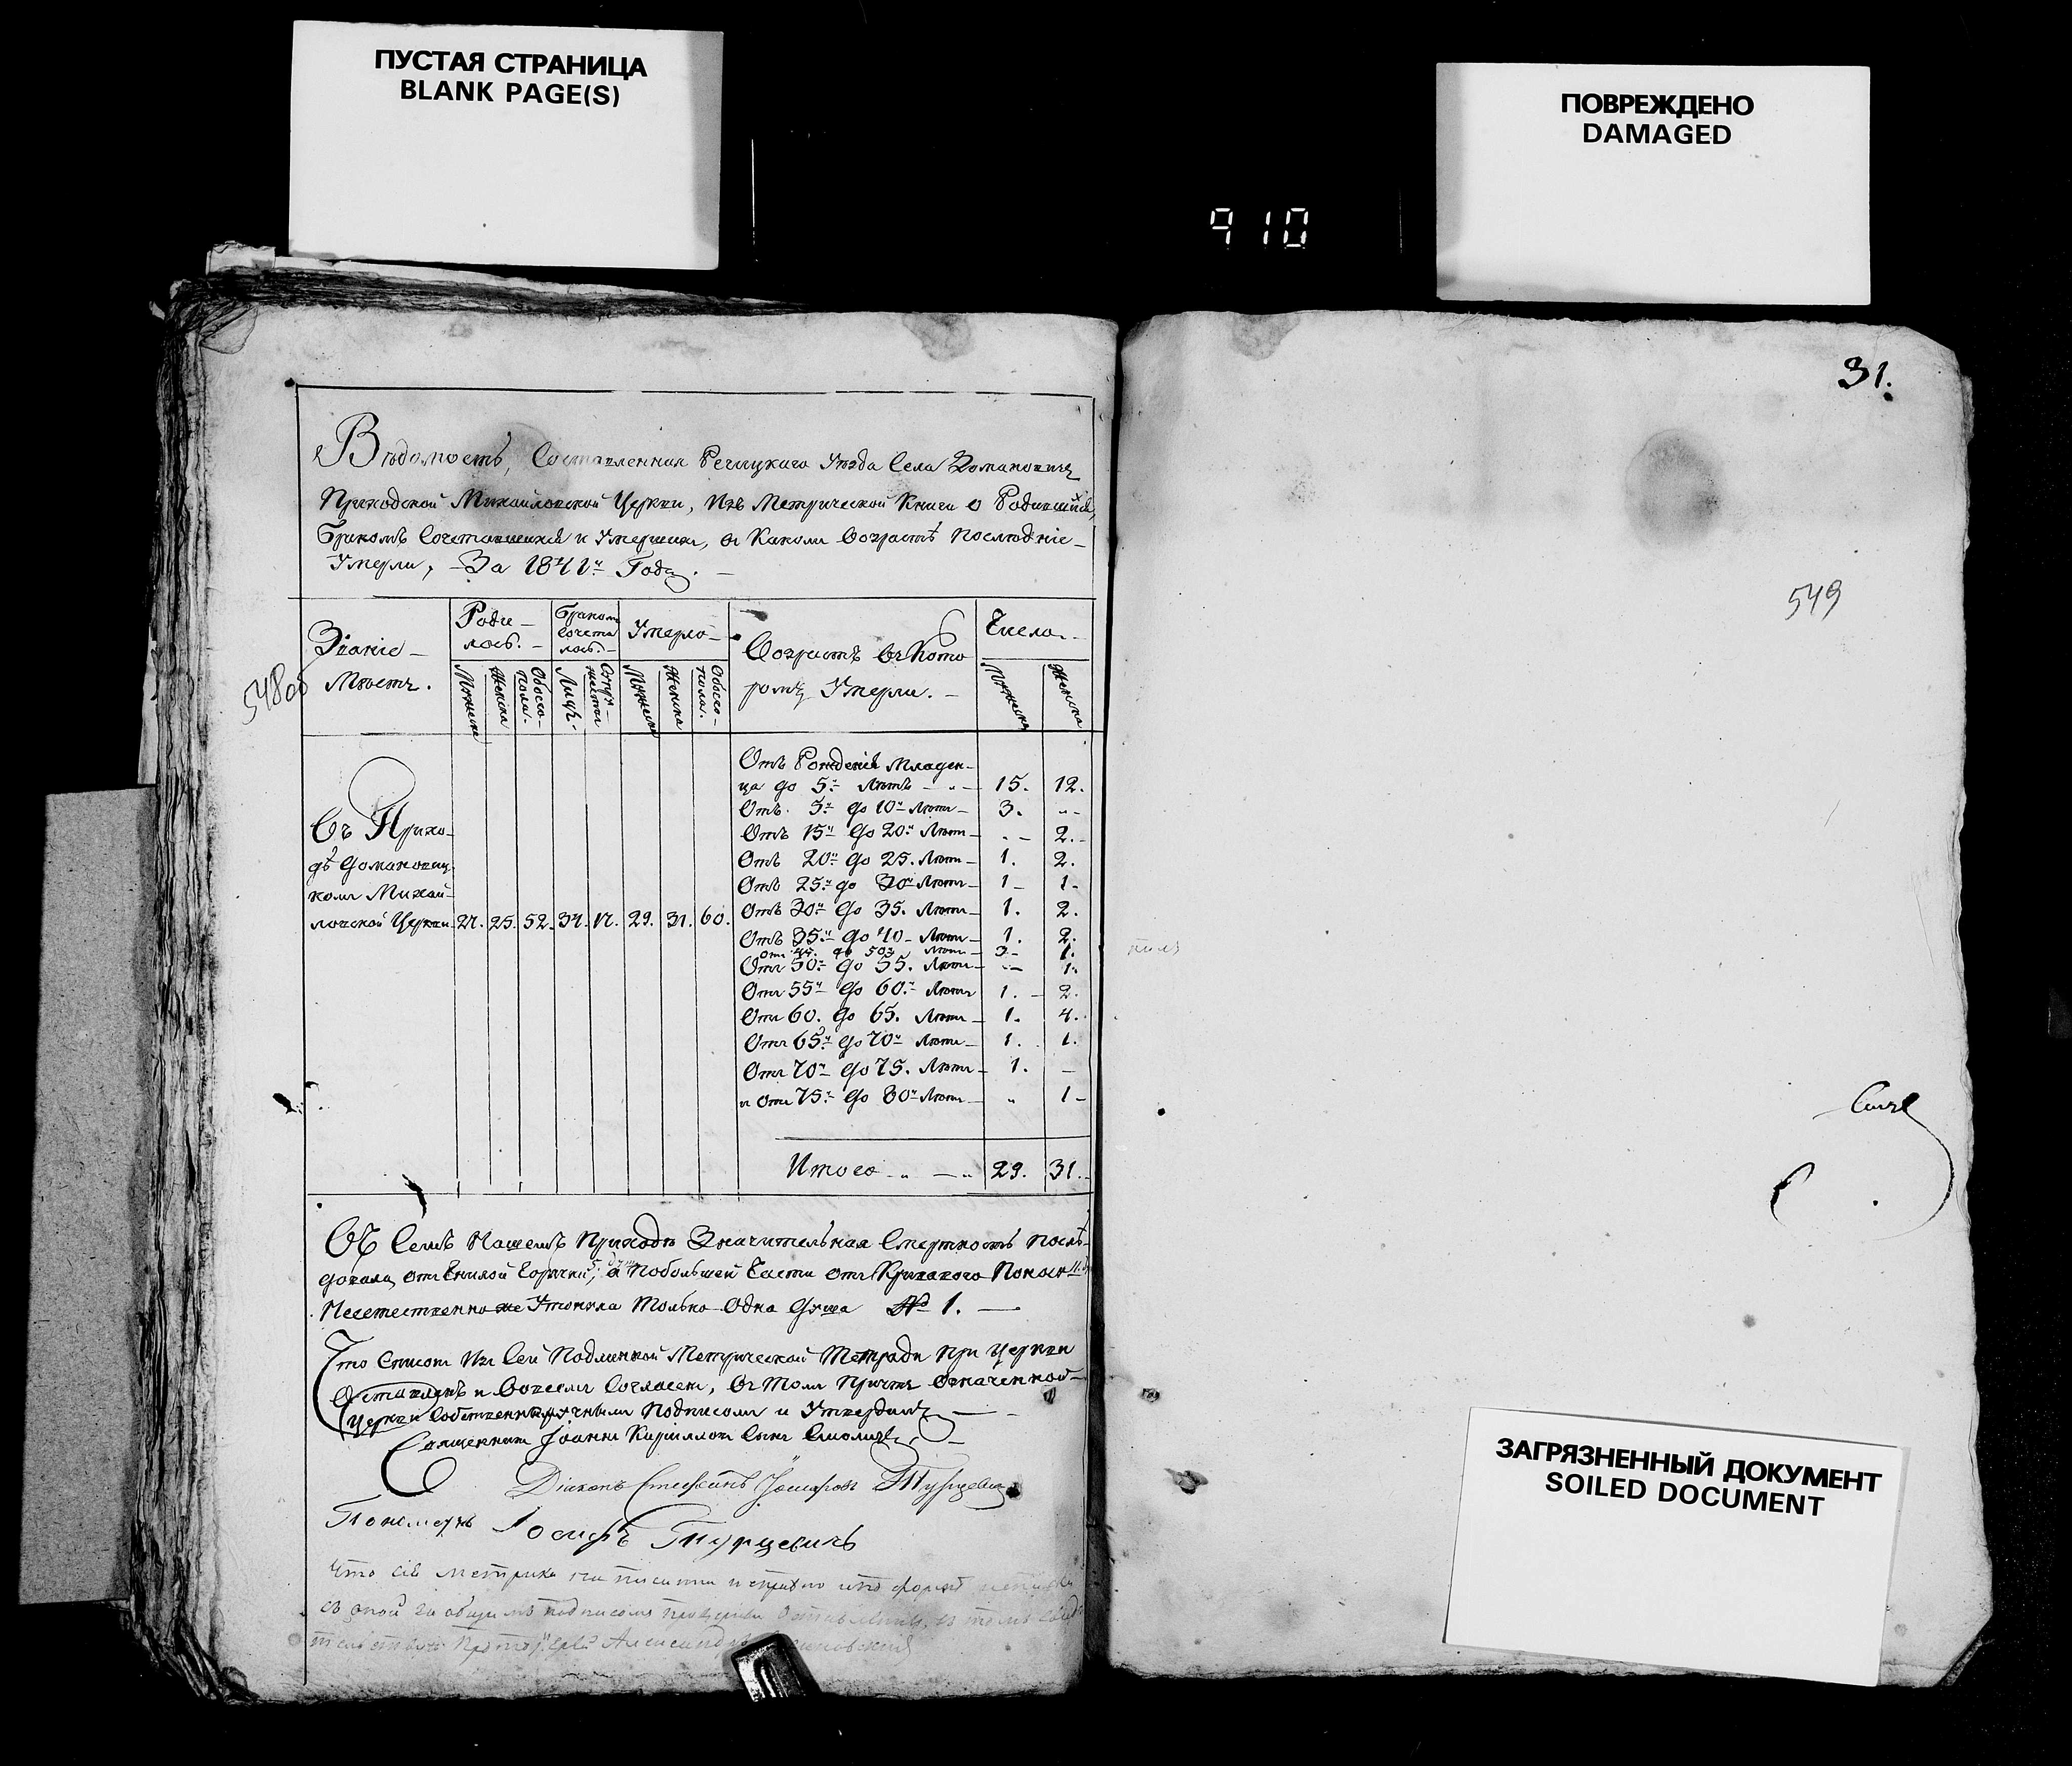 ПУСТАЯ СТРАНИЦА
BLANK PAGE(S)
ПОВРЕЖДЕНО
DAMAGED
910
31.
549
548об
Вѣдомость, Составленная Речицкаго Уѣзда Села Домановичъ
Приходской Михайловской Церкви, Изъ Метрической Книги о Родившихся,
Бракомъ Сочетавшихся и Умершихъ, въ Какомъ Возрастѣ Послѣдніе
Умерли, За 1841й Годъ.
Званіе Мѣстъ.
Роди-лось.
Бракомъ сочета лось.
Умерло
Возрастъ въ Кото ромъ Умерли.
Число
Мужеска Женска Обоего-пола. Лицъ Мужеска Женска Обоего-пола. Мужеска Женска
Отъ Рожденія Младен-
ца до 5. Лѣтъ 15. 12.
Отъ 5. до 10 Лѣтъ 3. "
Отъ 15 до 20. Лѣтъ - 2.
Отъ 20 до 25. Лѣтъ 1. 2.
Отъ 25. до 30 Лѣтъ 1 1.
Отъ 30 до 35. Лѣтъ 1. 2.
Отъ 35. до 40 Лѣтъ 1. 2.
отъ 45. до 50 Лѣтъ 3 1.
Отъ 50 до 55. Лѣтъ - 1.
Отъ 55 до 60. Лѣтъ 1. 2.
Отъ 60. до 65. Лѣтъ 1. 4.
Отъ 65. до 70 Лѣтъ 1. 1.
Отъ 70 до 75. Лѣтъ 1. -
и Отъ 75. до 80 Лѣтъ " 1
Въ Прихо-
дѣ Домановиц
комъ Михай-
ловской Церкви 27. 25. 52. 34. 17. 29. 31. 60.
Итого 29. 31.
Въ Семъ Нашемъ Приходѣ Значительная Смертность послѣ-
довала отъ Гнилой Горячки, а Побольшей Части отъ Кроваваго Поноса
Неестественно же Утонула Только Одна Душа № 1.
Что Списокъ Изъ Сей Подлинной Метрической Тетради При Церкви
Оставленъ и Вовсемъ Согласенъ, Въ Томъ Причтъ Означенной
Церкви Собственноручнымъ Подписомъ и Утвердилъ
Священникъ Іоаннъ Кирилловъ Сынъ Смоличъ
Діаконъ Стефанъ Турцевичъ
Пономарь Іосифъ Турцевичъ
Что сія метрика
съ оной за общимъ подписомъ
Протоіерей Александръ
ЗАГРЯЗНЕННЫЙ ДОКУМЕНТ
SOILED DOCUMENT